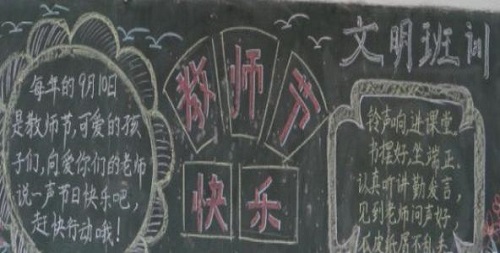 每年的9月10日
是教师节,可爱的孩
子们,向爱你们的老师
说一声节日快乐吧,
赶快行动哦!
教师节
快乐
文明班训
铃声响,进课堂
书摆好,坐端正
认真听讲勤发言,
见到老师问声好
不乱丢